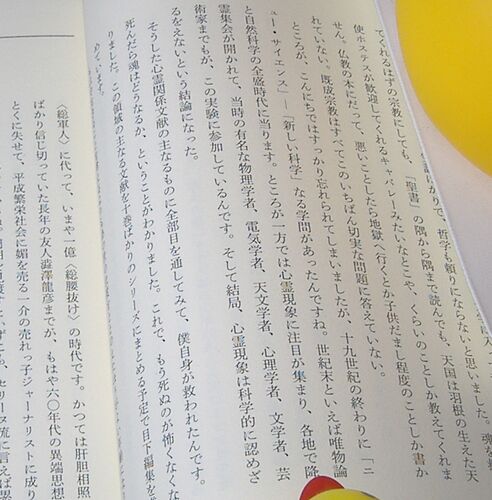 てくれるはずの宗教にしても、「聖書」の隅から隅まで読んでも、天国は羽根の生えた天
使ホステスが歓迎してくれるキャバレーみたいなとこや、くらいのことしか教えてくれま
せん。仏教の本にだって、悪いことしたら地獄へ行くとか子供だまし程度のことしか書か
れていない。既成宗教はすべてこのいちばん切実な問題に答えていない。
ところが、こんにちではすっかり忘れられてしまいましたが、十九世紀の終わりに「ニ
ュー・サイエンス」―「新しい科学」なる学問があったんですね。世紀末といえば唯物論
と自然科学の全盛時代に当ります。ところが一方では心霊現象に注目が集まり、各地で降
霊集会が開かれて、当時の有名な物理学者、電気学者、天文学者、心理学者、文学者、芸
術家までもが、この実験に参加しているんです。そして結局、心霊現象は科学的に認めざ
るをえないという結論になった。
そうした心霊関係文献の主なるものに全部目を通してみて、僕自身が救われたんです。
死んだら魂はどうなるか、ということがわかりました。これで、もう死ぬのが怖くなくな
りました。この領域の主なる文献を十巻ばかりのシリーズにまとめる予定で目下編集を
〈総軍人〉に代って、いまや一億〈総腰抜け〉の時代です。かつては肝胆相照
ばかり信じ切っていた長年の友人澁澤龍彦までが、もはや六〇年代の異端思想
とくに失せて、平成繁栄社会に媚を売る一介の売れっ子ジャーナリストに成り